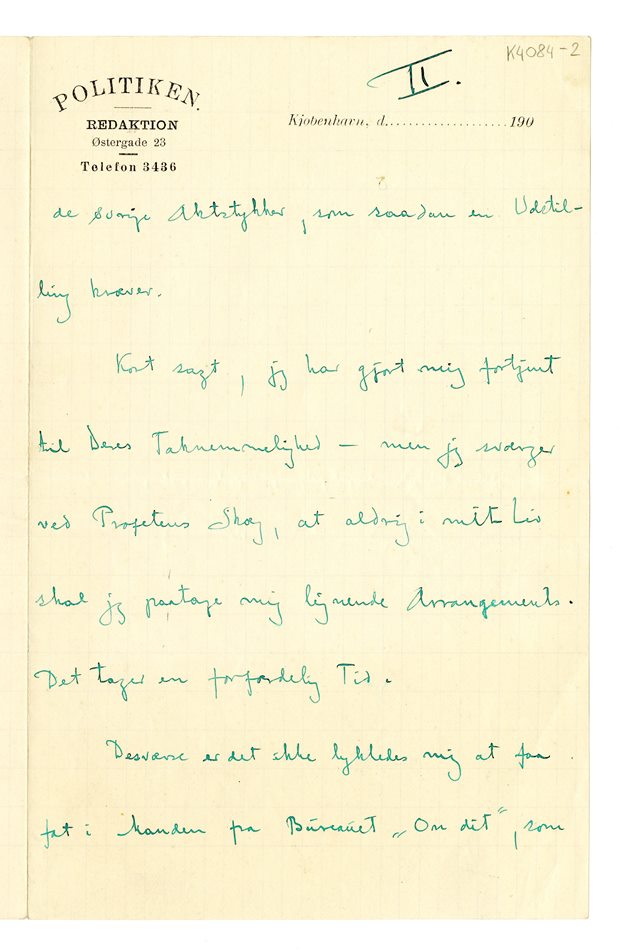 K4084-2
II.
POLITIKEN.
REDAKTION
Østergade 23
Telefon 3436
Kjøbenhavn, d. ................... 190
de øvrige Aktstykker, som saadan en Udstil-
ling kræver.
Kort sagt, jeg har gjort mig fortjent
til Deres Taknemmelighed — men jeg sværger
ved Profetens Skæg, at aldrig i mit Liv
skal jeg paatage mig lignende Arrangements.
Det tager en forfærdelig Tid.
Desværre er det ikke lykkedes mig at faa
fat i Manden fra Bureauet „On dit“, som